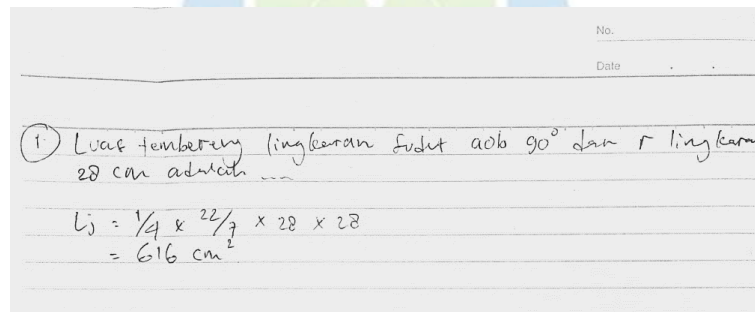 No.
Date
1. Luas tembereng lingkaran sudut aob 90° dan r lingkara
28 cm adalah ...
Lj = 1/4 x 22/7 x 28 x 28
= 616 cm²